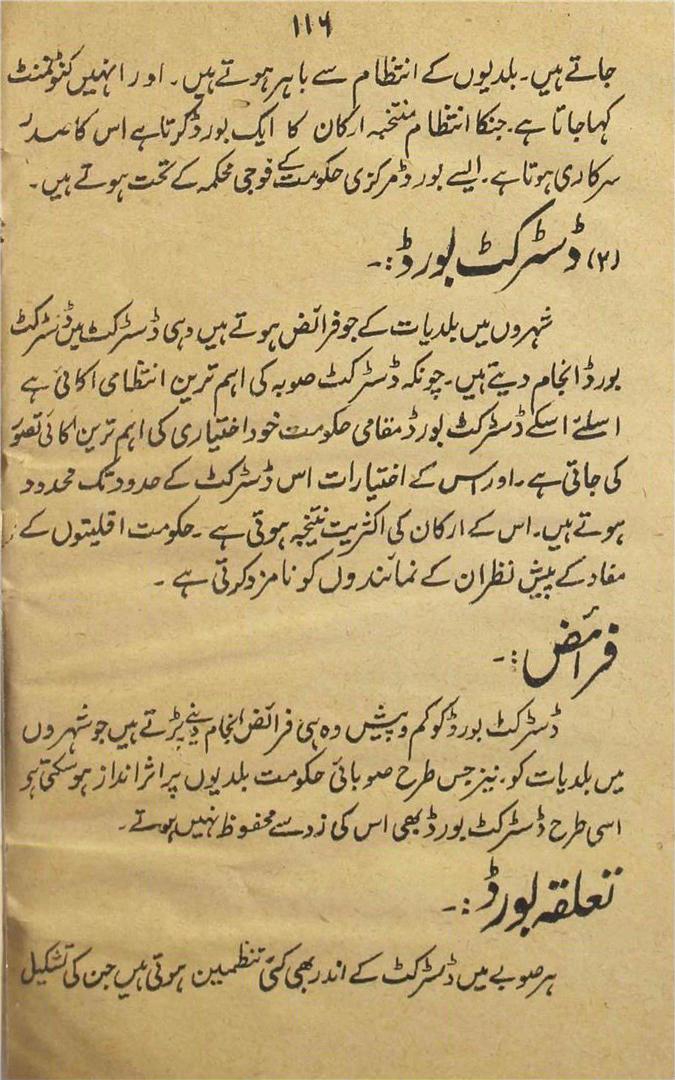 ۱۱۶
جاتے ہیں۔ بلدیوں کے انتظام سے باہر ہوتے ہیں۔ اور انہیں کنٹونمنٹ
کہا جاتا ہے۔ جنکا انتظام منتخبہ ارکان کا ایک بورڈ کرتا ہے اس کا صدر
سرکاری ہوتا ہے۔ ایسے بورڈ مرکزی حکومت کے فوجی محکمہ کے تحت ہوتے ہیں۔
(۲) ڈسٹرکٹ بورڈ :۔
شہروں میں بلدیات کے جو فرائض ہوتے ہیں وہی ڈسٹرکٹ میں ڈسٹرکٹ
بورڈ انجام دیتے ہیں۔ چونکہ ڈسٹرکٹ صوبہ کی اہم ترین انتظامی اکائی ہے
اسلئے اسکے ڈسٹرکٹ بورڈ مقامی حکومت خود اختیاری کی اہم ترین اکائی تصور
کی جاتی ہے۔ اور اس کے اختیارات اس ڈسٹرکٹ کے حدود تک محدود
ہوتے ہیں۔ اس کے ارکان کی اکثریت نتیجہ ہوتی ہے۔ حکومت اقلیتوں کے
مفاد کے پیش نظر ان کے نمائندوں کو نامزد کرتی ہے ۔
فرائض :۔
ڈسٹرکٹ بورڈ کو کم و بیش وہ ہی فرائض انجام دینے پڑتے ہیں جو شہروں
میں بلدیات کو۔ نیز جس طرح صوبائی حکومت بلدیوں پر اثر انداز ہو سکتی ہے
اسی طرح ڈسٹرکٹ بورڈ بھی اس کی زد سے محفوظ نہیں ہوتے۔
تعلقہ بورڈ :۔
ہر صوبے میں ڈسٹرکٹ کے اندر بھی کئی تنظمیین ہوتی ہیں جن کی تشکیل